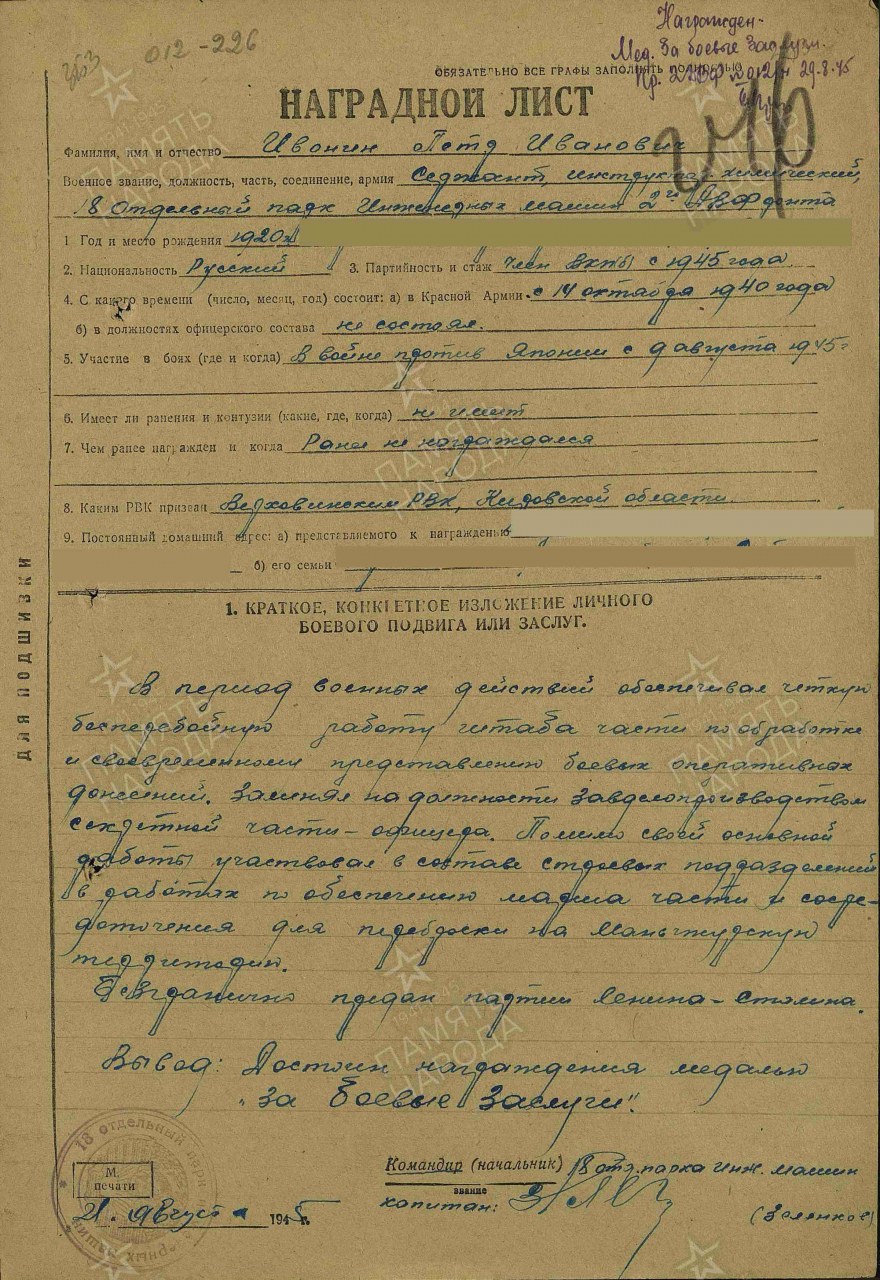 012-226
Награжден
Мед. За боевые заслуги.
Пр. 2ДВФ № 012н 29.8.45
ОБЯЗАТЕЛЬНО ВСЕ ГРАФЫ ЗАПОЛНЯТЬ ПОЛНОСТЬЮ
НАГРАДНОЙ ЛИСТ
Фамилия, имя и отчество Ивонин Петр Иванович
Военное звание, должность, часть, соединение, армия Сержант, инструктор химический,
18 Отдельный парк Инженерных машин 2го ДВФронта
1 Год и место рождения 1920г
2. Национальность Русский 3. Партийность и стаж член ВКПб с 1945 года
4. С какого времени (число, месяц, год) состоит: а) в Красной Армии с 14 октября 1940 года
б) в должностях офицерского состава не состоял.
5. Участие в боях (где и когда) В войне против Японии с 9 августа 1945г
6. Имеет ли ранения и контузии (какие, где, когда) не имеет
7. Чем ранее награжден и когда Ранее не награждался
8. Каким РВК призван Верховинским РВК, Кировской области.
9. Постоянный домашний адрес: а) представляемого к награждению
б) его семьи
ДЛЯ ПОДШИВКИ
1. КРАТКОЕ, КОНКРЕТНОЕ ИЗЛОЖЕНИЕ ЛИЧНОГО
БОЕВОГО ПОДВИГА ИЛИ ЗАСЛУГ.
В период военных действий обеспечивал четкую
бесперебойную работу штаба части по обработке
и своевременному представлению боевых оперативных
донесений. Заменял на должности Завделопроизводством
секретной части - офицера. Помимо своей основной
работы участвовал в составе строевых подразделений
в работах по обеспечению марша части и сосре-
доточения для переброски на Маньчжурскую
территорию.
Безгранично предан партии Ленина-Сталина.
Вывод: Достоин награждения медалью
"За Боевые Заслуги".
18 отдельный парк
М.
печати
21. августа 1945 г.
Командир (начальник) 18 отд. парка инж. машин
звание
капитан:
(Зеленков)
ПАМЯТЬ
НАРОДА